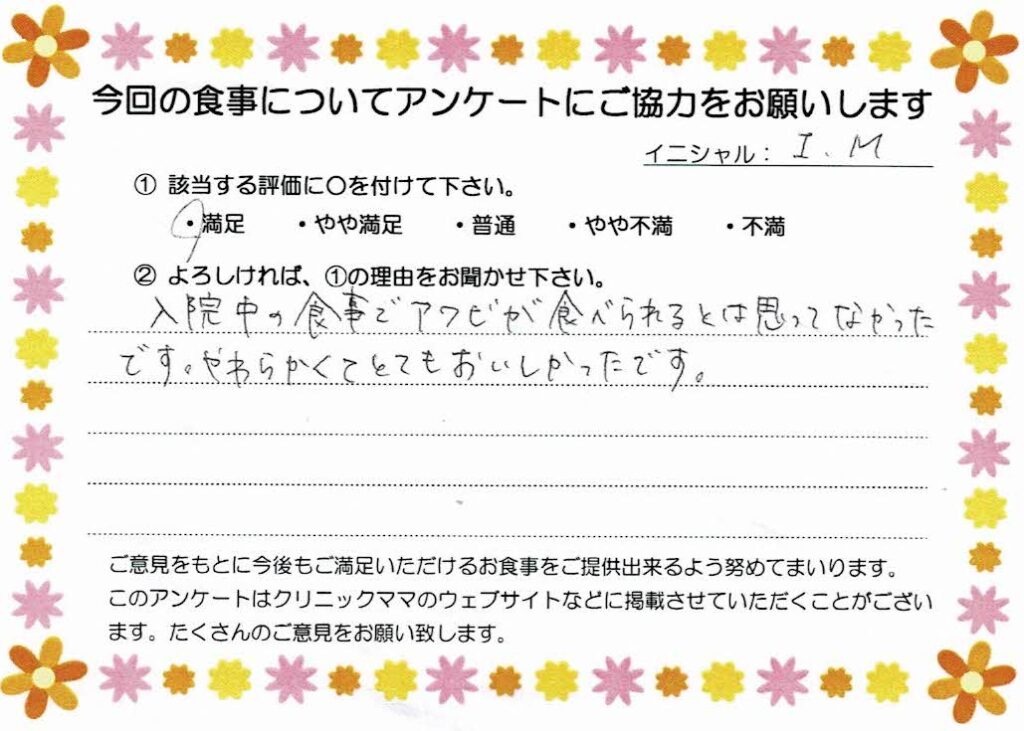 今回の食事についてアンケートにご協力をお願いします
イニシャル： I. M
① 該当する評価に〇を付けて下さい。
・満足 ・やや満足 ・普通 ・やや不満 ・不満
② よろしければ、①の理由をお聞かせ下さい。
入院中の食事でアワビが食べられるとは思ってなかった
です。やわらかくてとてもおいしかったです。
ご意見をもとに今後もご満足いただけるお食事をご提供出来るよう努めてまいります。
このアンケートはクリニックママのウェブサイトなどに掲載させていただくことがござい
ます。たくさんのご意見をお願い致します。